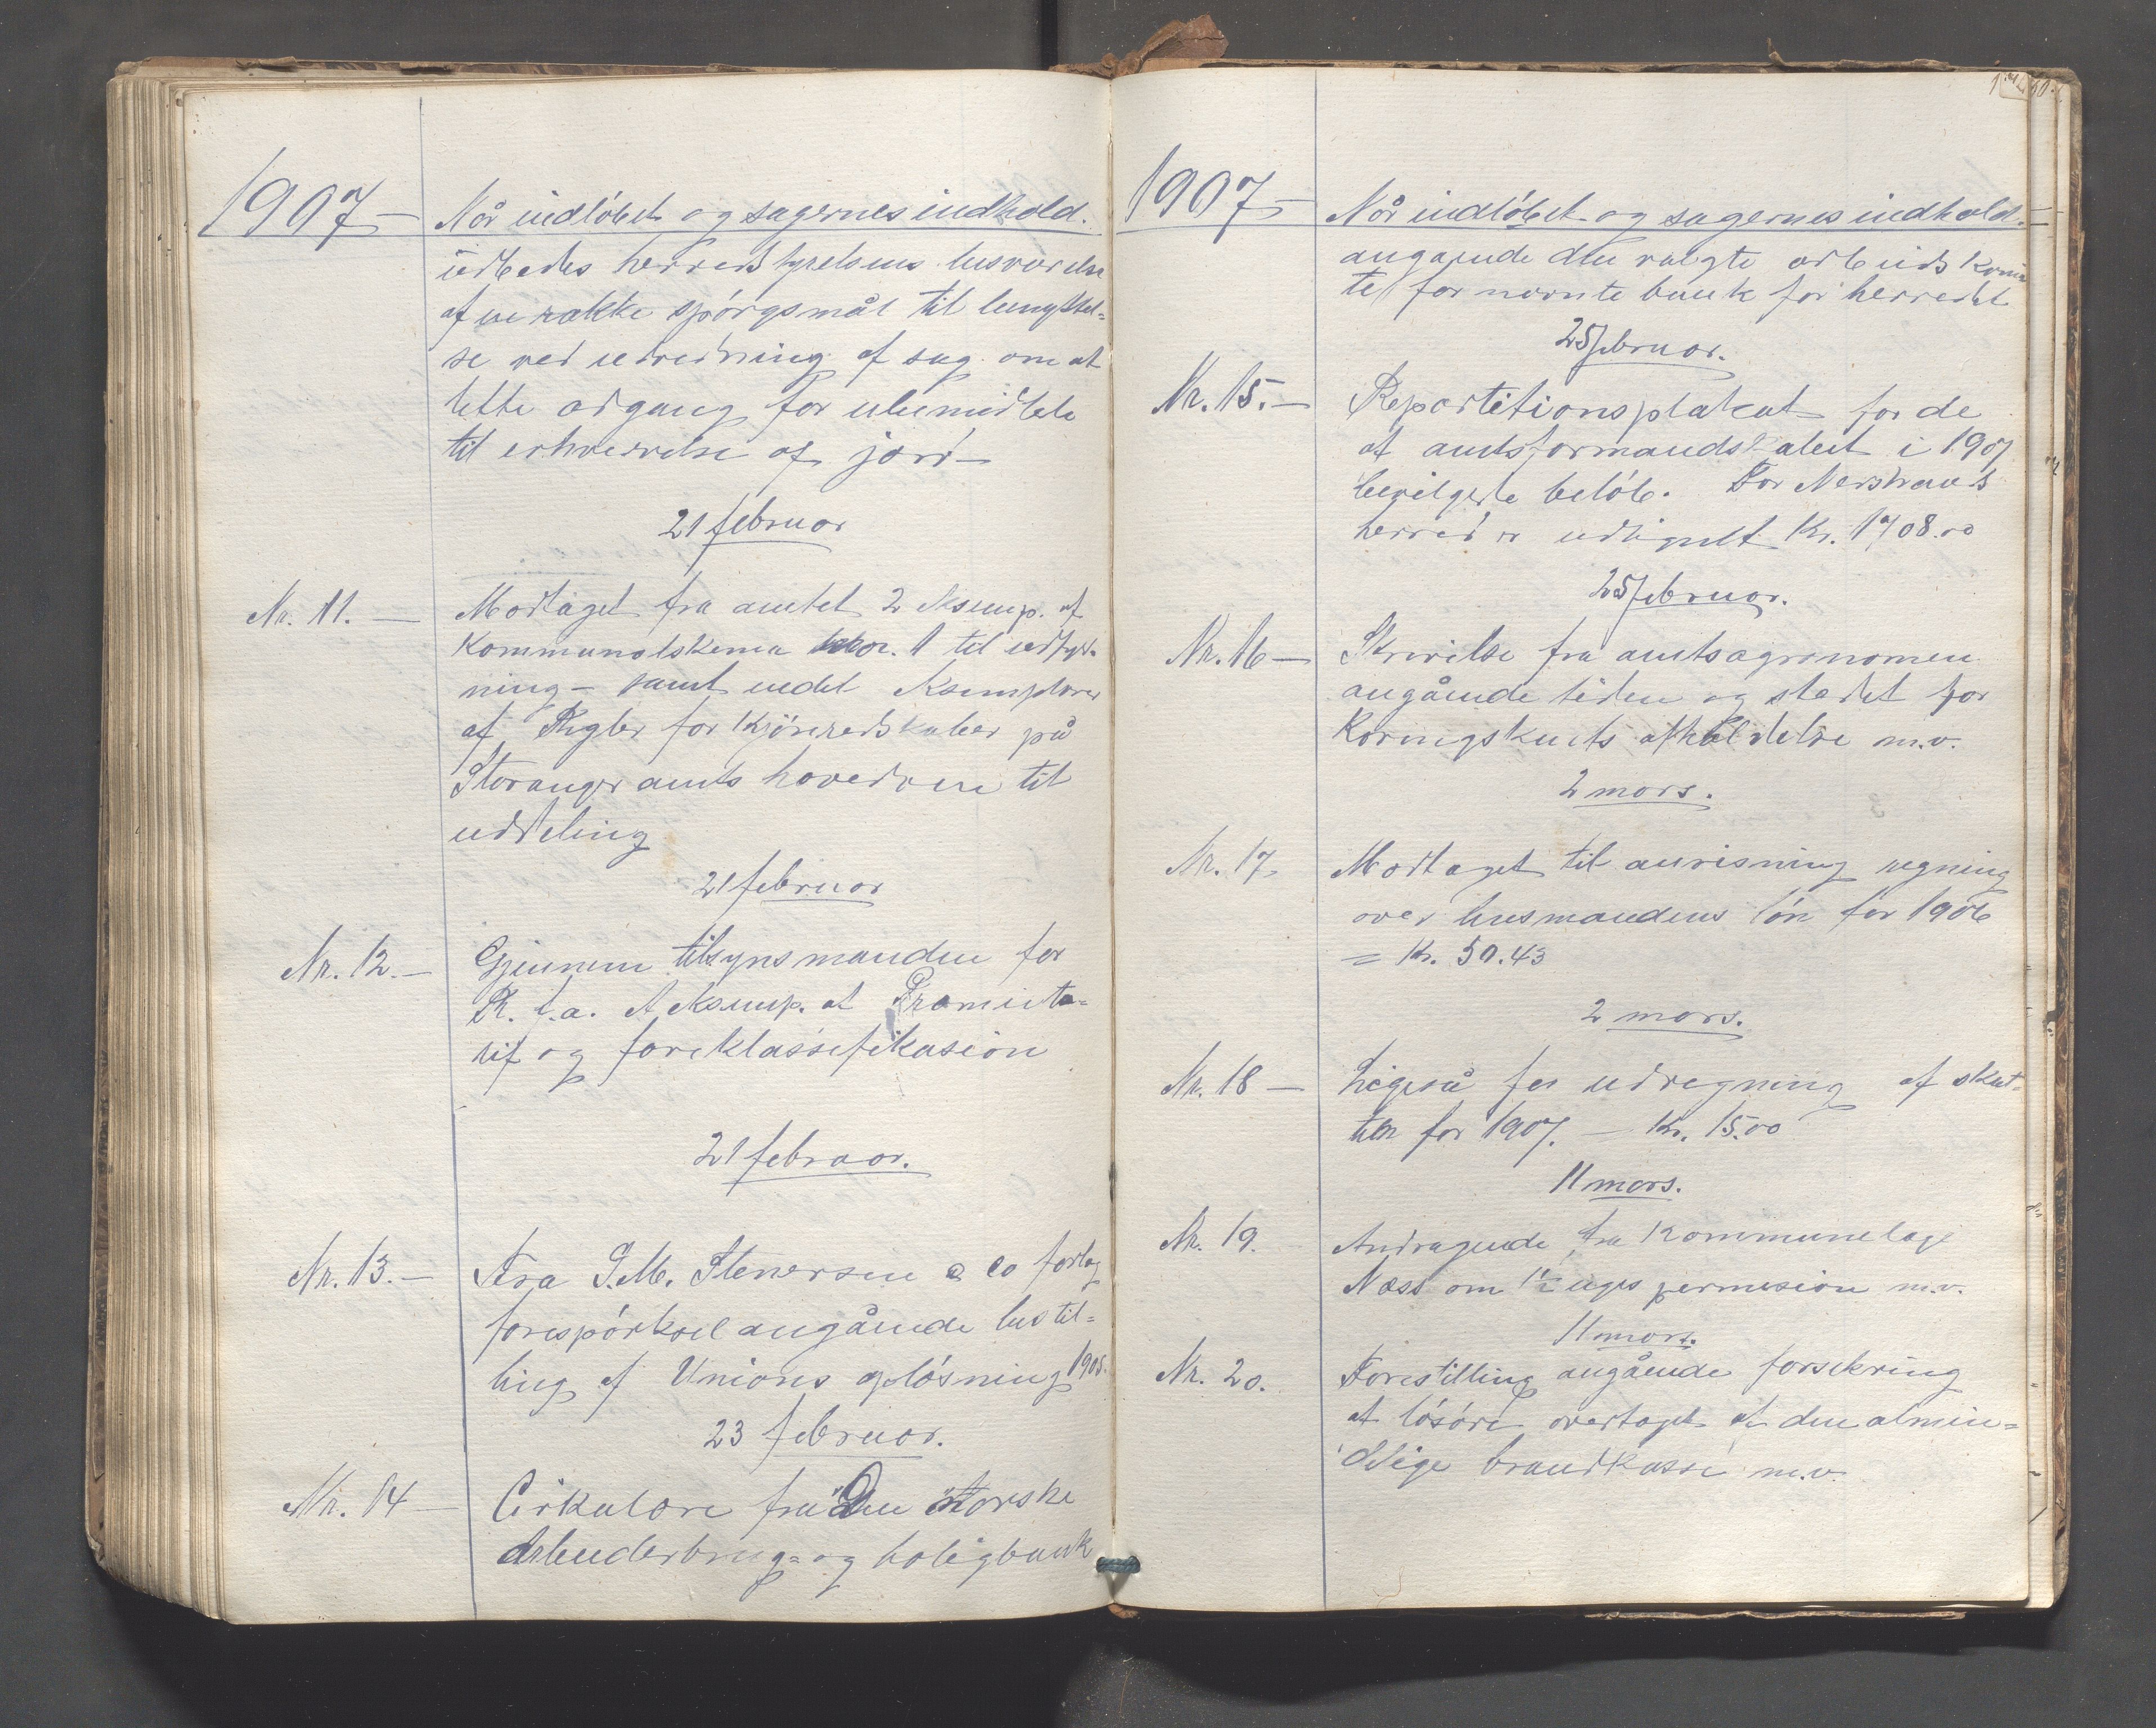 1907 – Når indløbet og sagernes indhold.
udbedes herredstyrelsens besvarelse
af en række spørgsmål til benyttel=
se ved udredning af sag om at
lette adgang for ubemidlede
til erhvervelse af jord –
21 februar
Nr. 11. – Modtaget fra amtet 2 eksemp. af
kommunalskema nr. 1 til udfyld-
ning – samt endel eksemplarer
af Regler for Kjøreredskaber på
Stavanger amts hovedveie til
uddeling
21 februar
Nr. 12. – Gjennem tilsynsmanden for
R. f. a. et eksemp. af Præmieta-
rif og fareklassefikasion
21 februar.
Nr. 13. – Fra J. M. Stenersen & Co forlag
forespørksel angående bestil=
ling af Unions opløsning 1905.
23 februar.
Nr. 14 – Cirkulære fra "Den norske
Arbeiderbrug= og boligbank
1907 – Når indløbet og sagernes indhold.
angaaende den valgte arbeidskomi
te for nævnte bank for herredet
25 februar.
Nr. 15. – Repartitionsplakat for de
af amtsformandskabet i 1907
bevilgede beløb. For Nerstrands
herred er udlignet Kr. 1708.00
25 februar.
Nr. 16 – Skrivelse fra amtsagronomen
angående tiden og stedet for
Kåringskuets afholdelse m.v.
2 mars.
Nr. 17. Modtaget til anvisning regning
over husmandens løn for 1906
= Kr. 50.43
2 mars.
Nr. 18 – Ligeså for udregning af skat=
ten for 1907. – Kr. 15.00
11 mars.
Nr. 19. Andragende fra Kommunelæge
Næss om 1½ uges permision m.v.
11 mars.
Nr. 20. Forestilling angående forsikring
af løsøre overtaget af den almin=
delige brandkasse m.v.